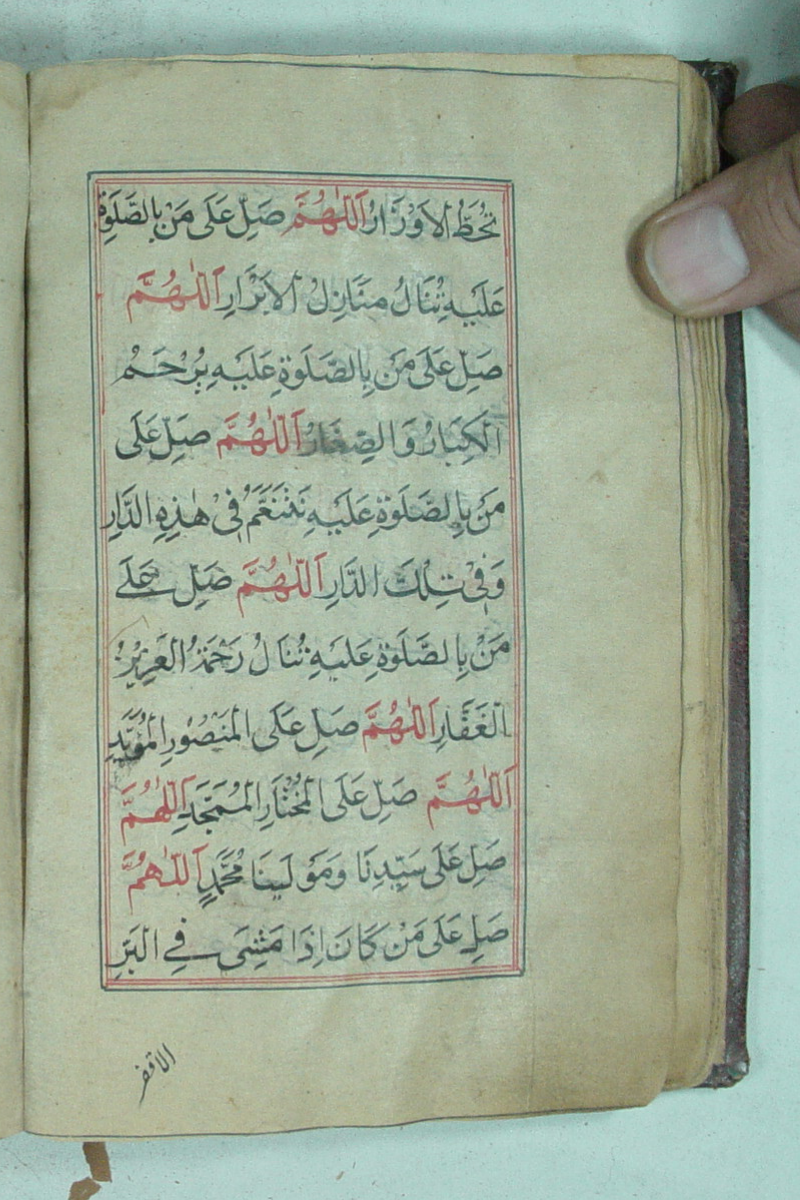 تُحَطُّ الأَوْزَارُ اَللّٰهُمَّ صَلِّ عَلَى مَنْ بِالصَّلَوةِ
عَلَيْهِ تُنَالُ مَنَازِلُ الأَبْرَارِ اَللّٰهُمَّ
صَلِّ عَلَى مَنْ بِالصَّلَوةِ عَلَيْهِ يُرْحَمُ
الْكِبَارُ وَالصِّغَارُ اَللّٰهُمَّ صَلِّ عَلَى
مَنْ بِالصَّلَوةِ عَلَيْهِ نَتَنَعَّمُ فِى هٰذِهِ الدَّارِ
وَفِى تِلْكَ الدَّارِ اَللّٰهُمَّ صَلِّ عَلَى
مَنْ بِالصَّلَوةِ عَلَيْهِ تُنَالُ رَحْمَةُ الْعَزِيْزِ
الْغَفَّارِ اَللّٰهُمَّ صَلِّ عَلَى الْمَنْصُورِ الْمُؤَيَّدِ
اَللّٰهُمَّ صَلِّ عَلَى الْمُخْتَارِ الْمُمَجَّدِ اَللّٰهُمَّ
صَلِّ عَلَى سَيِّدِنَا وَمَوْلَينَا مُحَمَّدٍ اَللّٰهُمَّ
صَلِّ عَلَى مَنْ كَانَ اِذَا مَشِىَ فِى الْبَرِّ
الاقفر